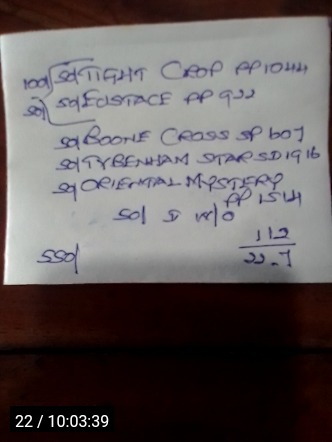 100/ 50/TIGHT CROP PP1044
50/ 50/EUSTACE PP 922
50/BOONE CROSS SP 607
50/TYBENHAM STAR SD1916
50/ORIENTAL MYSTERY
PP 1514
50/ 5 m/o
112
550/ 22-7
22 / 10:03:39